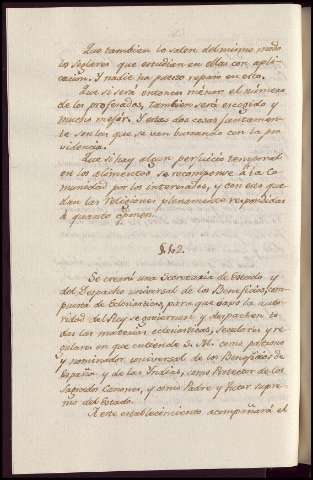 Que tambien lo salen del mismo modo
los seglares que estudian en ellas con apli-
cacion. Y nadie ha puesto reparo en esto.
Que si será entonces menor el número
de los profesados, tambien será escogido y
mucho mejor. Y estas dos cosas juntamen-
te son las que se van buscando con la pro
videncia.
Que si hay algun perjuicio temporal
en los alimentos se recompense á la Co
munidad por los interesados, y con esto que
dan las Religiones plenamente respondidas
á quanto oponen.
§.42.
Se creará una Secretaría de Estado y
del Despacho universal de los Beneficios, com
puesta de Eclesiasticos, para que baxo la auto
ridad del Rey se goviernen y despachen to
das las materias eclesiasticas, seculares y re
gulares en que entiende S. M. como patrono
y nominador universal de los Beneficios de
España y de las Yndias, como Protector de los
Sagrados Canones, y como Padre y Tutor supre
mo del Estado.
A este establecimiento acompañará el